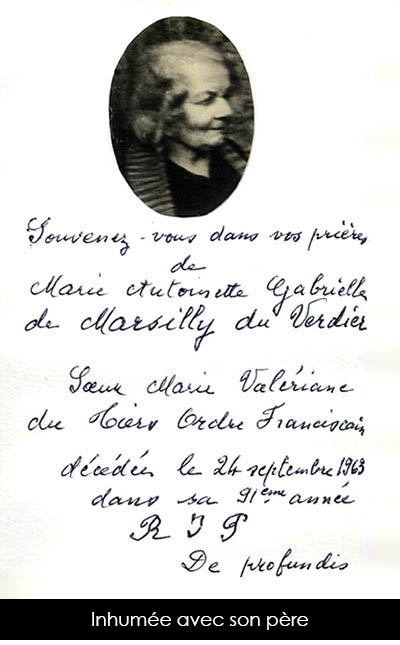 Souvenez-vous dans vos prières
de
Marie Antoinette Gabrielle
de Marsilly du Verdier
Sœur Marie Valériane
du Tiers Ordre Franciscain
décédée le 24 septembre 1963
dans sa 91ème année
R I P
De profundis
Inhumée avec son père